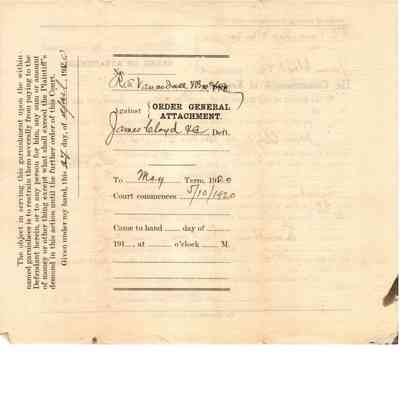 The object in serving this garnishment upon the within
named garnishees is to restrain them severally from paying to the
Defendant herein, or to any person for him, any sum or amount
of money or other thing except what shall exceed the Plaintiff's
demand in this action until the further order of this Court.
Given under my hand, this 27 day, of April, 1920
Against
ORDER GENERAL
ATTACHMENT.
James Cloyd &c Deft.
To May Term, 1920
Court commences 5/10/1920
Came to hand day of
191 , at o'clock M.